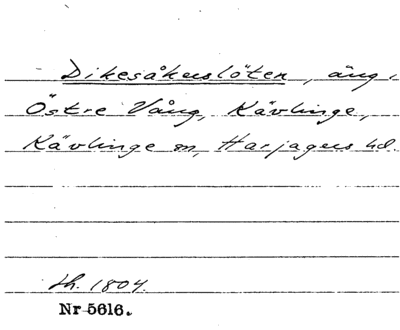 Dikesåkerslöten, äng,
Östre Vång, Kävlinge,
Kävlinge sn, Harjagers hd.
sh. 1804.
Nr 5616.